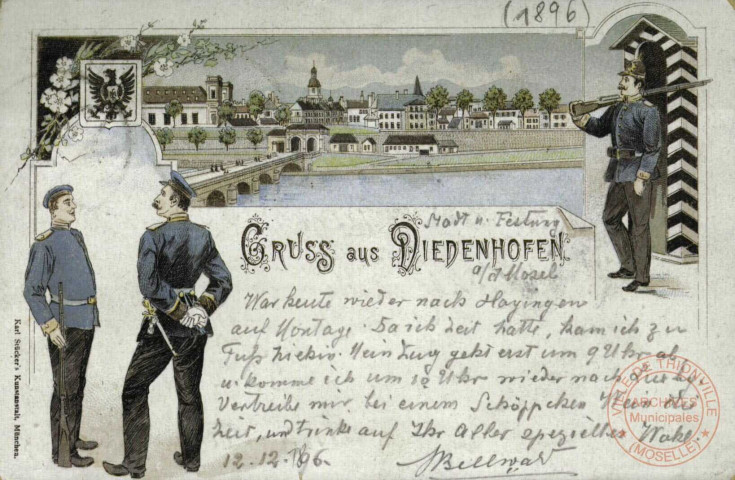 (1896)
Stadt u. Festung
GRUSS aus DIEDENHOFEN
a/d Mosel
War heute wieder nach Hayingen
auf Montage. Da ich Zeit hatte, kam ich zu
Fuß hierher. Mein Zug geht erst um 9 Uhr ab
u. komme ich um 10 Uhr wieder nach
Vertreibe mir bei einem Schöppchen Wein die
Zeit, und trinke auf Ihr Aller spezielles Wohl.
12.12.96.
Karl Stücker's Kunstanstalt, München.
VILLE DE THIONVILLE
ARCHIVES
Municipales
(MOSELLE)